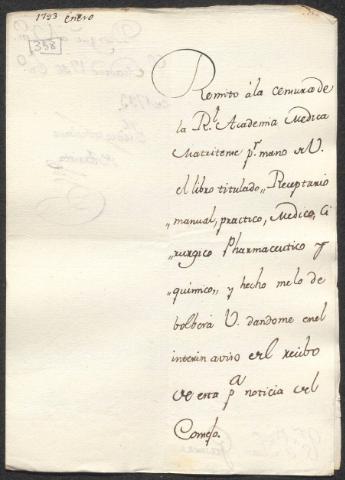 1793 enero
338
Remito á la censura de
la Rl. Academia Medica
Matritense pr. mano de V.
el libro titulado „ Receptario
„ manual, practico, Medico, Ci
„ rurgico Pharmaceutico y
„ quimico„ y hecho me lo de
bolberá V. dandome en el
interin aviso del recibo
de esta pa. noticia del
Consejo.